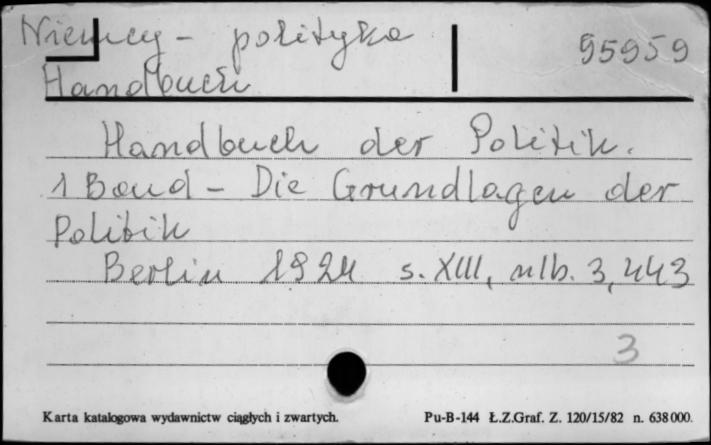 Niemcy - polityka 95959
Handbuch
Handbuch der Politik.
1 Band - Die Grundlagen der
Politik
Berlin 1924 s. XIII, nlb. 3, 443
3
Karta katalogowa wydawnictw ciągłych i zwartych. Pu-B-144 Ł.Z.Graf. Z. 120/15/82 n. 638 000.